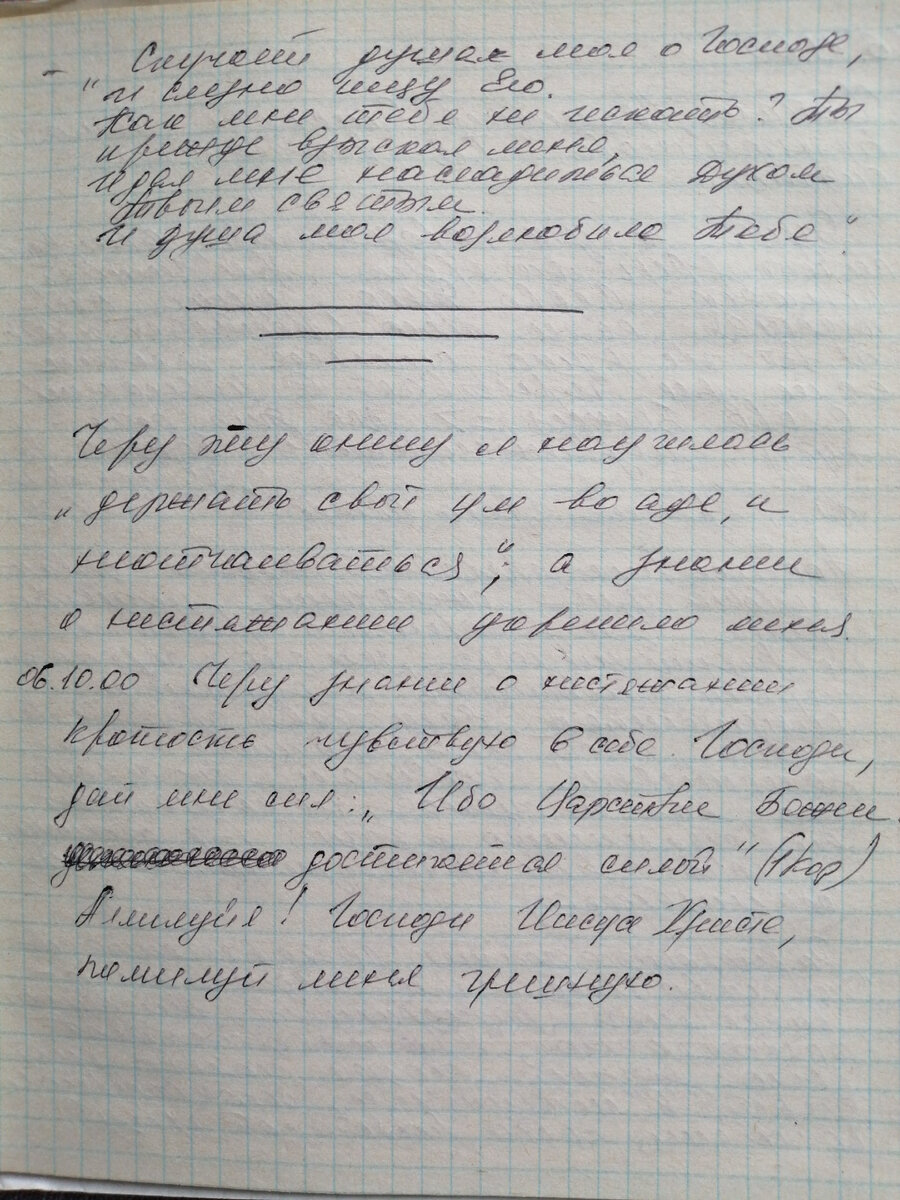 - Скучает душа моя о Господе,
„и слезно ищу Его.
Как мне тебя не искать? Ты
прежде взыскал меня,
и дал мне насладиться Духом
Твоим святым.
И душа моя возлюбила Тебя".
Через эту книгу я научилась
„держать свой ум во аде, и
неотчаиваться"; а знание
о нестяжании укрепило меня.
06.10.00 Через знание о нестяжании
кротость чувствую в себе. Господи,
дай мне сил: „Ибо Царствие Божие
достигается силой" (1 Кор)
Аллилуйя! Господи Иисусе Христе,
помилуй меня грешную.